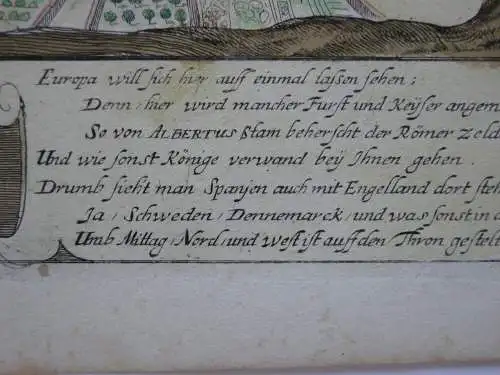 Europa will sich hier auff einmal laßen sehen;
Denn / hier wird mancher Furst und Keÿser angem
So von ALBERTUS Stam beherscht der Römer Zeld
Und wie sonst Könige verwand beÿ Ihnen gehen.
Drumb sieht man Spanjen auch mit Engelland dort steh
Ja / Schweden / Dennemarck / und was sonst in d
Umb Mittag / Nord / und West ist auff den Thron gestelt